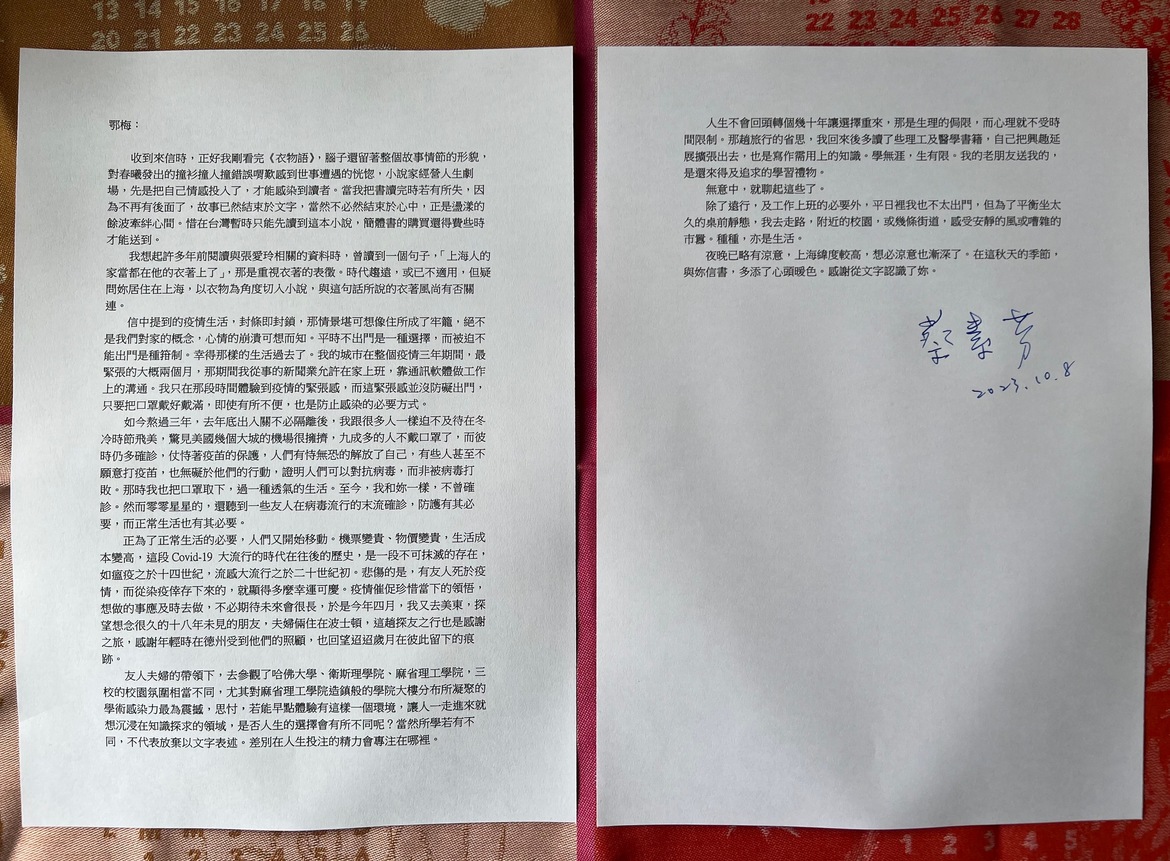 13 14 15 16 17 18 19
20 21 22 23 24 25 26
鄂梅：
收到來信時，正好我剛看完《衣物語》，腦子還留著整個故事情節的形貌，
對春曦發出的撞衫撞人撞錯誤喟歎感到世事遭遇的恍惚，小說家經營人生劇
場，先是把自己情感投入了，才能感染到讀者。當我把書讀完時若有所失，因
為不再有後面了，故事已然結束於文字，當然不必然結束於心中，正是盪漾的
餘波牽絆心間。惜在台灣暫時只能先讀到這本小說，簡體書的購買還得費些時
才能送到。
我想起許多年前閱讀與張愛玲相關的資料時，曾讀到一個句子，「上海人的
家當都在他的衣著上了」，那是重視衣著的表徵。時代趨遠，或已不適用，但疑
問妳居住在上海，以衣物為角度切入小說，與這句話所說的衣著風尚有否關
連。
信中提到的疫情生活，封條即封鎖，那情景堪可想像住所成了牢籠，絕不
是我們對家的概念，心情的崩潰可想而知。平時不出門是一種選擇，而被迫不
能出門是種箝制。幸得那樣的生活過去了。我的城市在整個疫情三年期間，最
緊張的大概兩個月，那期間我從事的新聞業允許在家上班，靠通訊軟體做工作
上的溝通。我只在那段時間體驗到疫情的緊張感，而這緊張感並沒防礙出門，
只要把口罩戴好戴滿，即使有所不便，也是防止感染的必要方式。
如今熬過三年，去年底出入關不必隔離後，我跟很多人一樣迫不及待在冬
冷時節飛美，驚見美國幾個大城的機場很擁擠，九成多的人不戴口罩了，而彼
時仍多確診，仗恃著疫苗的保護，人們有恃無恐的解放了自己，有些人甚至不
願意打疫苗，也無礙於他們的行動，證明人們可以對抗病毒，而非被病毒打
敗。那時我也把口罩取下，過一種透氣的生活。至今，我和妳一樣，不曾確
診。然而零零星星的，還聽到一些友人在病毒流行的末流確診，防護有其必
要，而正常生活也有其必要。
正為了正常生活的必要，人們又開始移動。機票變貴、物價變貴，生活成
本變高，這段 Covid-19 大流行的時代在往後的歷史，是一段不可抹滅的存在，
如瘟疫之於十四世紀，流感大流行之於二十世紀初。悲傷的是，有友人死於疫
情，而從染疫倖存下來的，就顯得多麼幸運可慶。疫情催促珍惜當下的領悟，
想做的事應及時去做，不必期待未來會很長，於是今年四月，我又去美東，探
望想念很久的十八年未見的朋友，夫婦倆住在波士頓，這趟探友之行也是感謝
之旅，感謝年輕時在德州受到他們的照顧，也回望迢迢歲月在彼此留下的痕
跡。
友人夫婦的帶領下，去參觀了哈佛大學、衛斯理學院、麻省理工學院，三
校的校園氛圍相當不同，尤其對麻省理工學院造鎮般的學院大樓分布所凝聚的
學術感染力最為震撼，思忖，若能早點體驗有這樣一個環境，讓人一走進來就
想沉浸在知識探求的領域，是否人生的選擇會有所不同呢？當然所學若有不
同，不代表放棄以文字表述。差別在人生投注的精力會專注在哪裡。
22 23 24 25 26 27 28
人生不會回頭轉個幾十年讓選擇重來，那是生理的侷限，而心理就不受時
間限制。那趟旅行的省思，我回來後多讀了些理工及醫學書籍，自己把興趣延
展擴張出去，也是寫作需用上的知識。學無涯，生有限。我的老朋友送我的，
是還來得及追求的學習禮物。
無意中，就聊起這些了。
除了遠行，及工作上班的必要外，平日裡我也不太出門，但為了平衡坐太
久的桌前靜態，我去走路，附近的校園，或幾條街道，感受安靜的風或嘈雜的
市囂。種種，亦是生活。
夜晚已略有涼意，上海緯度較高，想必涼意也漸深了。在這秋天的季節，
與妳信書，多添了心頭暖色。感謝從文字認識了妳。
蔡素芬
2023.10.8
1 2 3 4 5